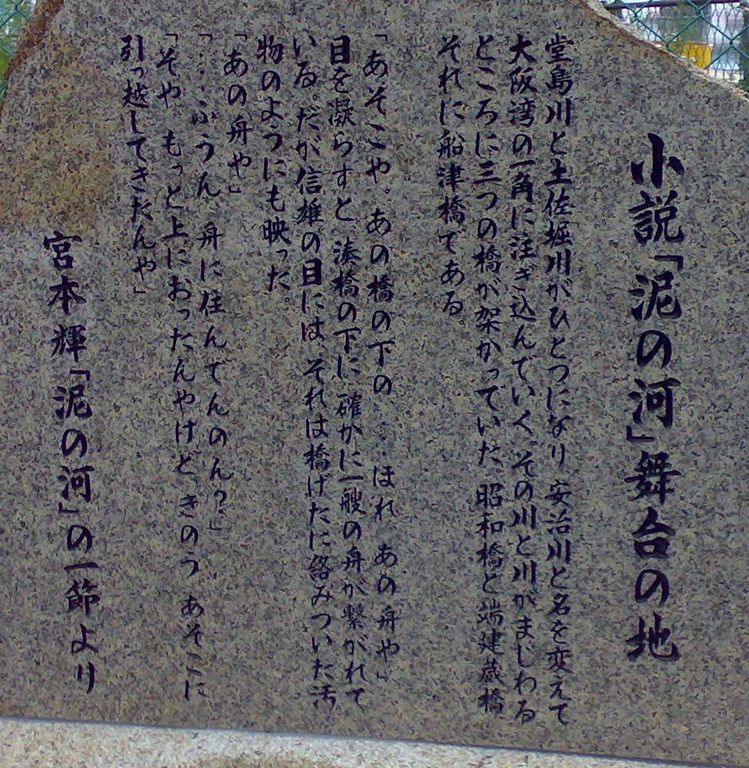 小説「泥の河」舞台の地
堂島川と土佐堀川がひとつになり、安治川と名を変えて
大阪湾の一角に注ぎ込んでいく。その川と川がまじわる
ところに三つの橋が架かっていた。昭和橋と端建蔵橋、
それに船津橋である。
「あそこや。あの橋の下の……ほれ、あの舟や」
目を凝らすと、湊橋の下に、確かに一艘の舟が繋がれて
いる。だが信雄の目には、それは橋げたに絡みついた汚
物のようにも映った。
「あの舟や」
「……ふうん、舟に住んでんのん？」
「そや、もっと上におったんやけど、きのう、あそこに
引っ越してきたんや」
宮本輝「泥の河」の一節より